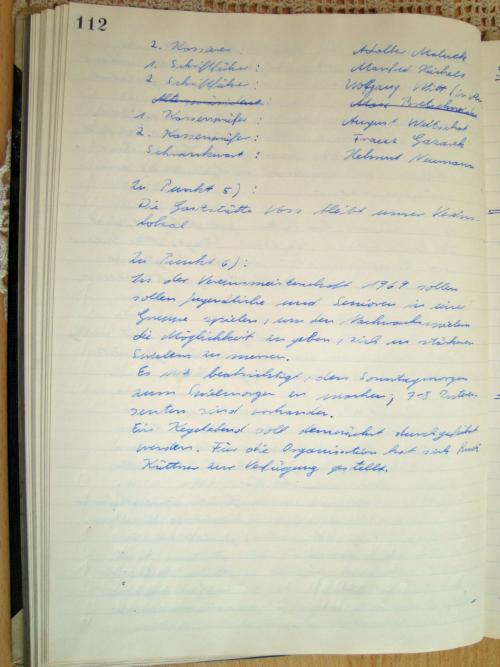 112
2. Kassierer: Adalbe Maluck
1. Schriftführer: Manfred
2. Schriftführer: Wolfgang Witt
Alterspräsident: Max Bretschneider
1. Kassenprüfer: August Weltschat
2. Kassenprüfer: Franz
Schrankwart: Helmut Neumann
Zu Punkt 5):
Die Gaststätte Voss bleibt unser Vereins-
lokal
Zu Punkt 6):
In der Vereinsmeisterschaft 1969 sollen
sollen Jugendliche und Senioren in einer
Gruppe spielen, um den Nachwuchsspielern
die Möglichkeit zu geben, sich an stärkeren
Spielern zu messen.
Es ist beabsichtigt, den Sonntagmorgen
zum Spielmorgen zu machen; 7-8 Interes-
senten sind vorhanden.
Ein Kegelabend soll demnächst durchgeführt
werden. Für die Organisation hat sich
Küttner zur Verfügung gestellt.